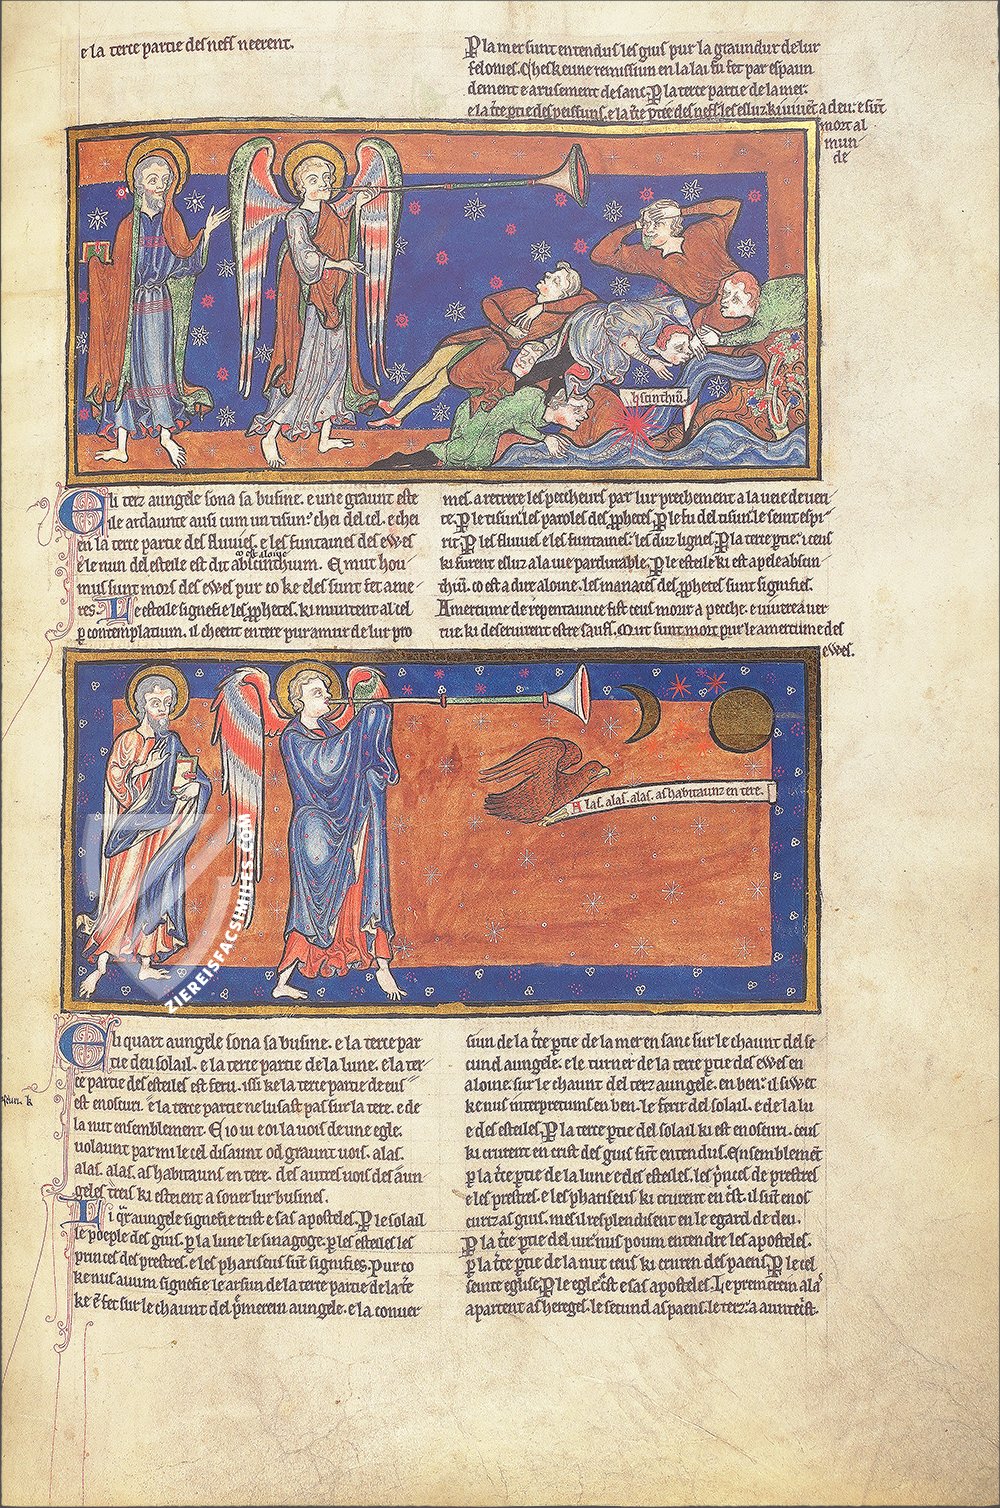 e la terce partie des nefs neerent.
P la mer sunt entendus les gius pur la graundur de lur
felonies. Cheskeune remissiun en la lai fu fet par espaun
dement e arusement de sanc. P la terce partie de la mer.
e la t̄ce p̄tie des peissuns. e la t̄ce p̄tie des nefs. les esluz ki uiuēt a deu. e sūt
mort al
mun
de
hscinthiū.
Eli terz aungele sona sa busine. e une graunt este
ile ardaunte ausi cum un tisun. chei del cel. e chei
en la terce partie des fluuies. e les funtaines des ewes
co est aloine
e le nun del esteile est dit abscinthium. E mut hou-
mus sunt mors des ewes pur co ke eles sunt fet ame-
res. Le esteile signefie les p̄phetes. ki muntent al cel
p contemplatium. il cheent en tere pur amur de lur pro
mes. a retrere les pecheurs par lur prechement a la ueie de uen-
te. P le tisun. les paroles des p̄phetes. P le fu del tisun. le seint espi-
rit. P les fluuies e les funtaines. les duz lignes. P la terce p̄tie. iceus
ki furent esluz a la uie pardurable. P le esteile ki est apele absin-
thiū. co est a dire aloine. les manaces des p̄phetes sunt signifies.
Amertume de repentaunce fist ceus morir a peche. e uiure a uer
tue. ki deseruirent estre saufs. Mut sunt mort pur le amertume des
ewes.
Alas. alas. alas. as habitaunz en tere.
Eli quart aungele sona sa busine. e la terce par
tie deu solail. e la terce partie de la lune. e la ter-
ce partie des esteiles est feru. issi ke la terce partie de eus
est enoscuri. e la terce partie ne lusast pas sur la tere. e de
la nuit ensemblement. E io ui e oi la uois de une egle.
uolaunt par mi le cel disaunt od graunt uois. alas.
alas. alas. as habitauns en tere. des autres uois des aun
geles treis ki esteient a soner lur busines.
Li q̄r aungele signefie crist e sas aposteles. P le solail
le poeple des gius. p la lune le sinagoge. p les esteiles les
princes des prestres. e les phariseus sūt signifies. Pur co
ke nus auum signefie le arsun de la terce partie de la t̄re
ke ē fet sur le chaunt del p̄merein aungele. e la conuer
siun de la t̄ce p̄tie de la mer en sanc sur le chaunt del se
cund aungele. e le turner de la terce p̄tie des ewes en
aloine. sur le chaunt del terz aungele. en ben. il siwet
ke nus interpretums en ben. le ferir del solail. e de la lu
e des esteiles. P la terce p̄tie del solail ki est enoscuri. ceus
ki crurent en crist des gius sūt entendus. Ensemblemēt
p la t̄ce p̄tie de la lune e des esteiles. les p̄nces de prestres
e les prestres. e les phariseus ki crurent en c̄st. il sūt enos
curiz as gius. mes il resplendisent en le egard de deu.
P la t̄ce p̄tie del iur. nus poum entendre les aposteles.
p la t̄ce p̄tie de la nuit ceus ki cruren des paens. P le cel
seinte eglise. P le egle. c̄st e sas aposteles. Le premerein ala⁹
apartent as hereges. le secund as paens. le terz. a auntec̄st.
ZIEREISFACSIMILES.COM